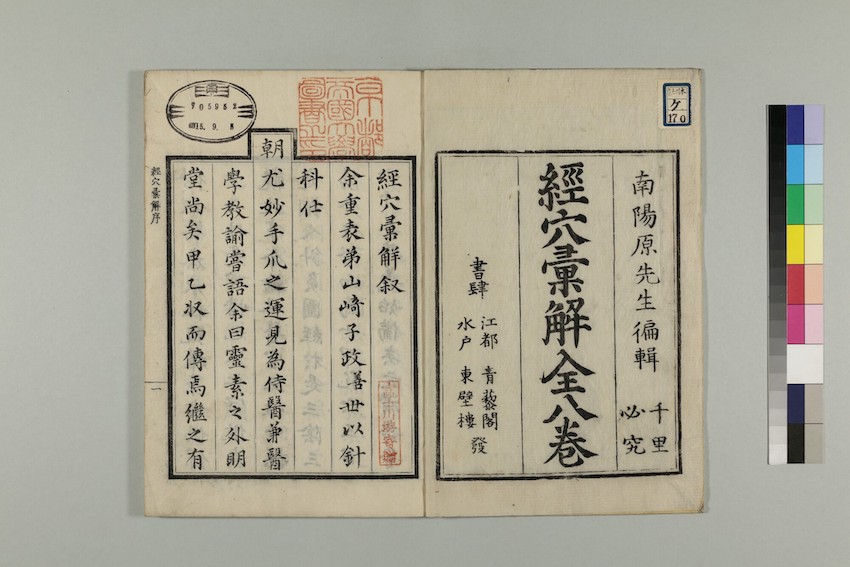 南陽原先生徧輯
千里
必究
經穴彙解全八卷
書肆
江都 青藜閣
水戶 東壁樓
發
ケ
170
經穴彙解叙
余重表弟山崎子政善世以針
科仕
朝尤妙手爪之運見為侍醫兼醫
學教諭嘗語余曰靈素之外明
堂尚矣甲乙収而傳焉繼之有
經穴彙解序
一
705952